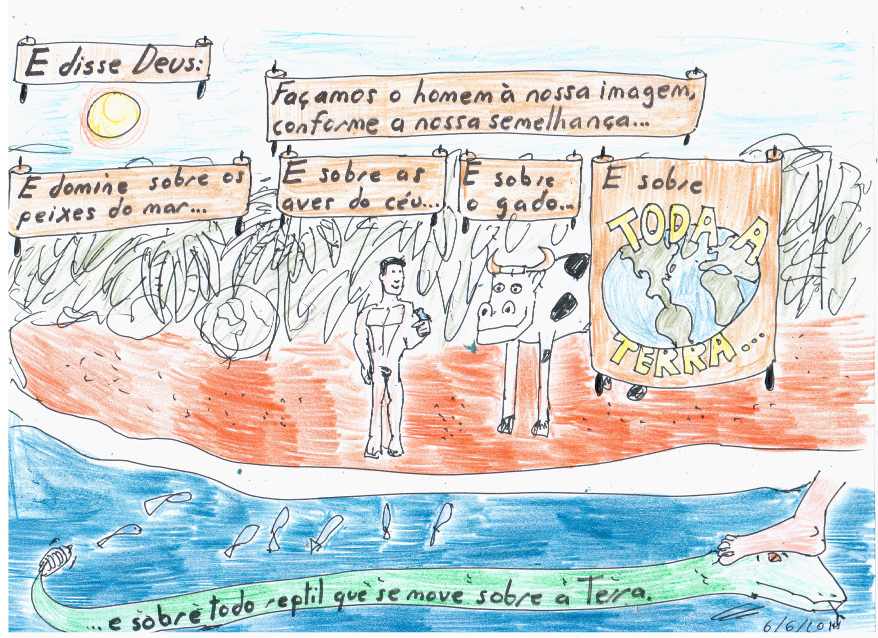 E disse Deus:
Façamos o homem à nossa imagem,
conforme a nossa semelhança...
E domine sobre os
peixes do mar...
E sobre as
aves do céu...
E sobre
o gado...
E sobre
TODA A
TERRA...
...e sobre todo reptil que se move sobre a Terra.